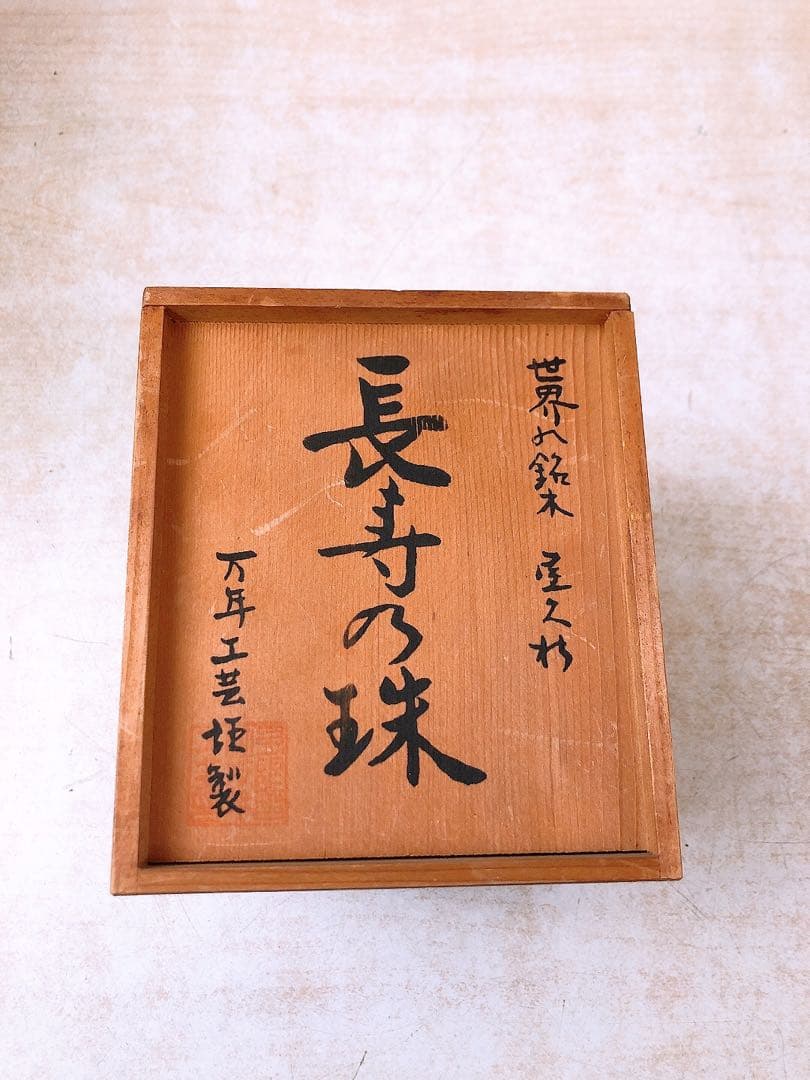 世界の銘木 屋久杉
長寿の珠
万年工芸 製